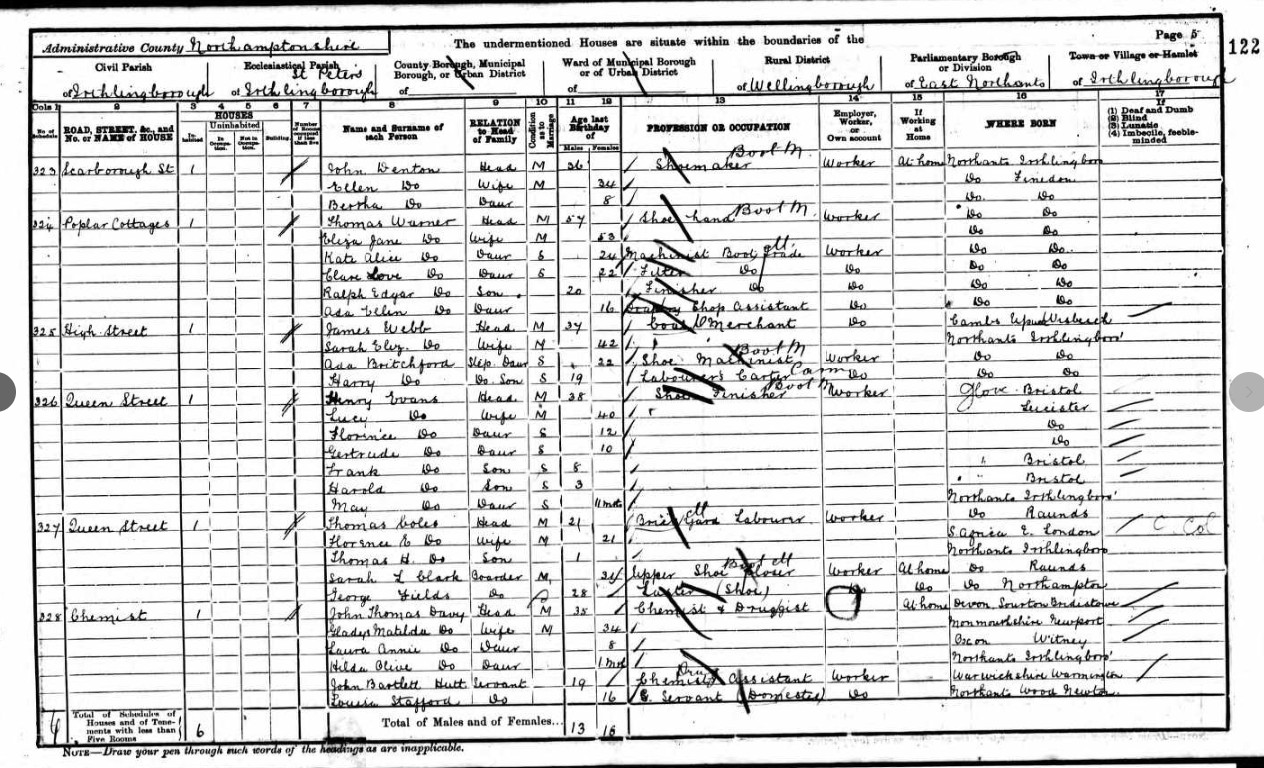 Administrative County Northamptonshire
The undermentioned Houses are situate within the boundaries of the
Page 5
122
Civil Parish
of Irthlingborough
Ecclesiastical Parish
St Peters
of Irthlingborough
County Borough, Municipal Borough, or Urban District
of
Ward of Municipal Borough or of Urban District
of
Rural District
of Wellingborough
Parliamentary Borough or Division
of East Northants
Town or Village or Hamlet
of Irthlingborough
Cols 1 2 3 4 5 6 7 8 9 10 11 12 13 14 15 16 17
No. of Schedule
ROAD, STREET, &c., and No. or NAME of HOUSE
HOUSES
Inhabited
Uninhabited
In Occupation.
Not in Occupation.
Building.
Number of Rooms occupied if less than five
Name and Surname of each Person
RELATION to Head of Family
Condition as to Marriage
Age last Birthday of
Males Females
PROFESSION OR OCCUPATION
Employer, Worker, or Own account
If Working at Home
WHERE BORN
If
(1) Deaf and Dumb
(2) Blind
(3) Lunatic
(4) Imbecile, feeble-minded
323 Scarborough St 1 John Denton Head M 36 Shoemaker Boot M Worker At home Northants Irthlingboro
Ellen Do Wife M 34 Do Finedon
Bertha Do Daur 8 Do Do
324 Poplar Cottages 1 Thomas Warner Head M 57 Shoe hand Boot M Worker Do Do
Eliza Jane Do Wife M 53 Do Do
Kate Alice Do Daur S 24 Machinist Boot trade Worker Do Do
Clara Love Do Daur S 22 Fitter Do Do Do Do
Ralph Edgar Do Son 20 Finisher Do Do Do Do
Ada Ellen Do Daur 16 Drapery Shop Assistant Do Do Do
325 High Street 1 James Webb Head M 37 Coal Merchant Do Cambs Wisbeach
Sarah Eliz. Do Wife M 42 Northants Irthlingboro'
Ada Britchford Step. Daur S 22 Shoe Machinist Boot M Worker Do Do
Harry Do Do. Son S 19 Labourer Carter Do Do Do
326 Queen Street 1 Henry Evans Head M 38 Shoe Finisher Boot M Worker Glos. Bristol
Lucy Do Wife M 40 Leicester
Florence Do Daur S 12 Do
Gertrude Do Daur S 10 Do
Frank Do Son S 8 " Bristol
Harold Do Son S 3 " Bristol
May Do Daur S 11 mths Northants Irthlingboro'
327 Queen Street 1 Thomas Coles Head M 21 Brick Yard Labourer Worker Do Raunds
Florence E Do Wife M 21 S. Africa E. London C Col
Thomas H. Do Son 1 Northants Irthlingboro
Sarah L Clark Boarder M 34 Upper Shoe Closer Worker At home Do Raunds
George Fields Do 28 (Shoe) Do Do Do Northampton
328 Chemist 1 John Thomas Davy Head M 35 Chemist & Druggist At home Devon, Sourton Bridestowe
Gladys Matilda Do Wife M 34 Monmouthshire Newport
Laura Annie Do Daur 8 Oxon Witney
Hilda Olive Do Daur 1 mth Northants Irthlingboro'
John Bartlett Hutt Servant 19 Chemist's Assistant Worker Warwickshire Warmington
Louisa Stafford Do 16 G. Servant (Domestic) Do Northants Wood Newton
4 Total of Schedules of Houses and of Tenements with less than Five Rooms
6
Total of Males and of Females...
13 16
NOTE—Draw your pen through such words of the headings as are inapplicable.